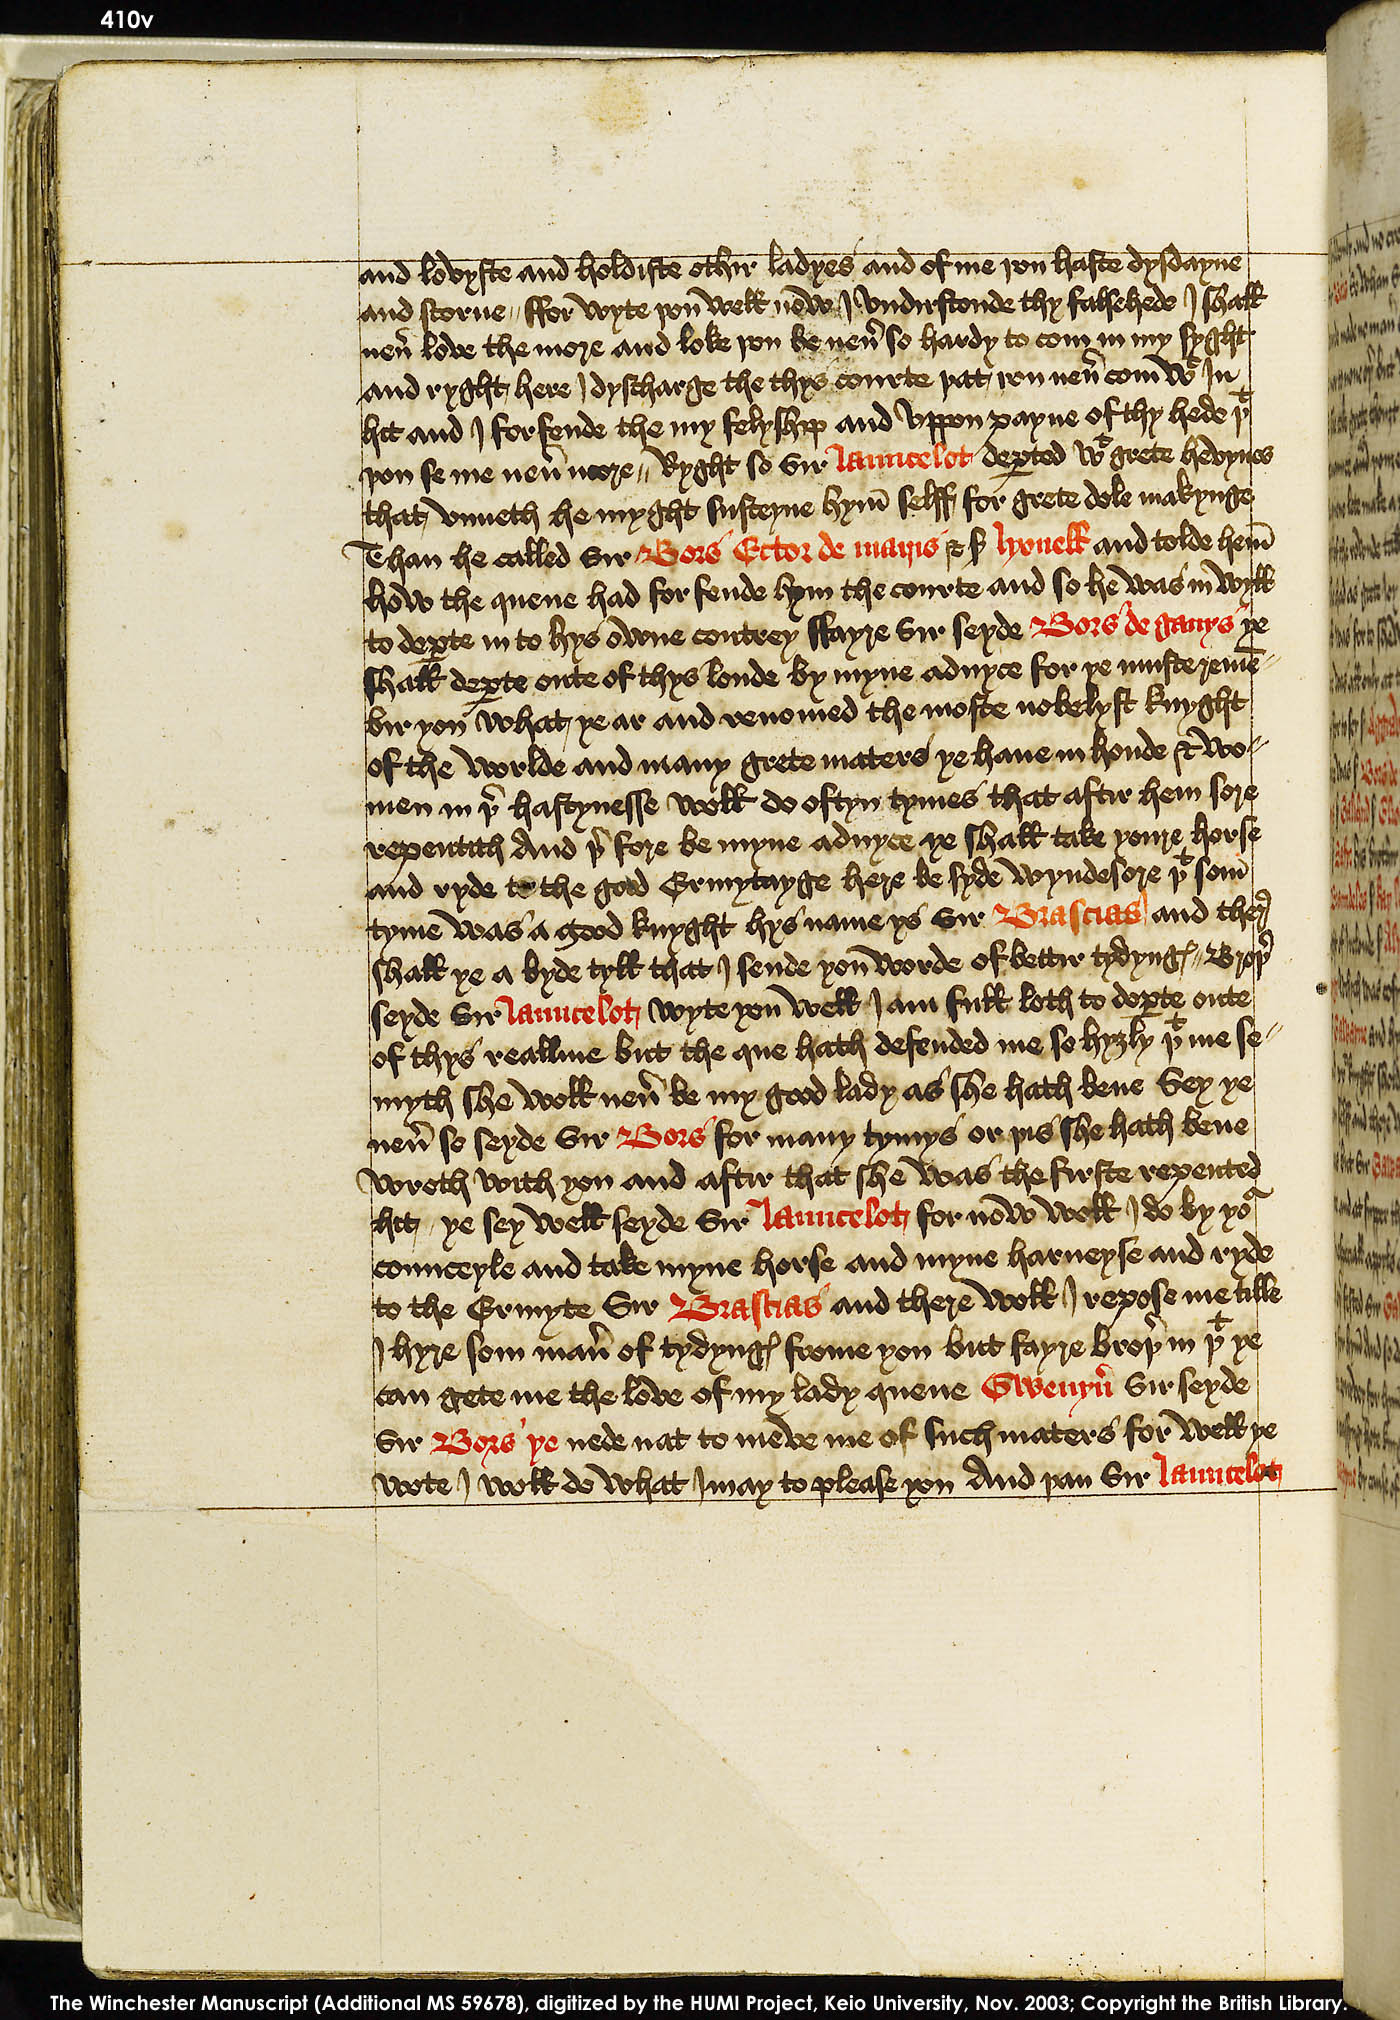 410v
and lovyste and holdiste othir ladyes and of me þou haste dysdayne
and scorne // ffor wyte þou well now I vndirstonde thy falsehede I shall
neu̅ love the more and loke þou be neu̅ so hardy to com in my syght
and ryght here I dyscharge the thys courte þat þou neu̅ com wᵗ In
hit and I forfende the my felyship and vppon payne of thy hede þᵗ
þou se me neu̅ more // Ryght so Sir Launcelot deꝑted wᵗ grete hevynes
that vnneth he myght susteyne hym̅ selff for grete dole makynge
Than he called Sir Bors Ector de marys & sʳ lyonell and tolde hem̅
how the quene had forfende hym the courte and so he was in wyll
to deꝑte in to hys owne contrey ffayre Sir seyde Bors de ganys ye
shall deꝑte oute of thys londe by myne aduyce for ye muste reme̅-
bir you what ye ar and renomed the moste nobelyst knyght
of the worlde and many grete maters ye haue in honde & wo-
men in þʳ hastynesse woll do oftyn tymes that aftir hem sore
repentith And þʳ fore be myne aduyce ye shall take youre horse
and ryde to the good Ermytayge here be syde wyndesore þᵗ som̅
tyme was a good knyght hys name ys Sir Brascias and there
shall ye a byde tyll that I sende you worde of bettir tydyngꝭ // Broþʳ
seyde Sir Launcelot wyte you well I am full loth to deꝑte oute
of thys reallme but the que hath defended me so hyȝly þᵗ me se-
myth she woll neu̅ be my good lady as she hath bene Sey ye
neu̅ so seyde Sir Bors for many tymys or þis she hath bene
wroth with you and aftir that she was the firste repented
hit / ye sey well seyde Sir Launcelot for now woll I do by yoʳ
counceyle and take myne horse and myne harneyse and ryde
to the Ermyte Sir Brastias and there woll I repose me tille
I hyre som man̅ of tydyngꝭ frome you but fayre broþʳ in þᵗ ye
can gete me the love of my lady quene Gwenyu̅ Sir seyde
Sir Bors ye nede nat to meve me of such maters for well ye
wote I woll do what I may to please you And þan Sir Launcelot
The Winchester Manuscript (Additional MS 59678), digitized by the HUMI Project, Keio University, Nov. 2003; Copyright the British Library.